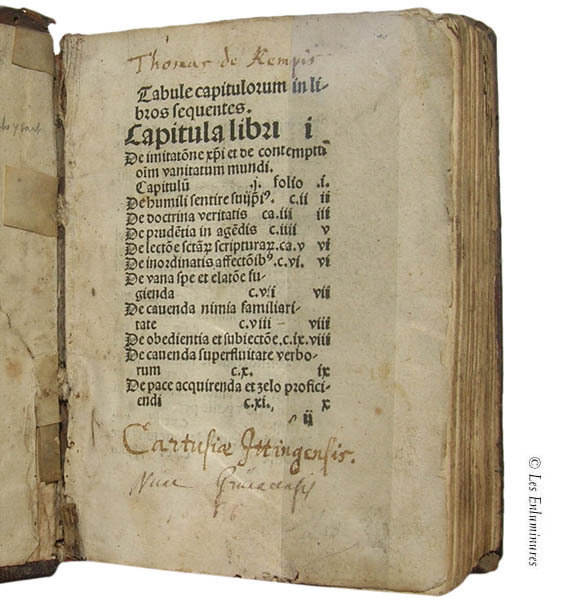 Thomas de Kempis
Tabule capitulorum in li-
bros sequentes.
Capitula libri i
De imitatōne xp̄i et de contemptu
oīm vanitatum mundi.
Capitulū .j. folio .i.
De humili sentire suijp̄iꝰ. c.ii ii
De doctrina veritatis ca.iii iii
De prudētia in agēdis c.iiii v
De lectōe sctāꝝ scripturaꝝ.ca.v v
De inordinatis affectōibꝰ.c.vi. vi
De vana spe et elatōe fu-
gienda c.vii vii
De cauenda nimia familiari-
tate c.viii - viii
De obedientia et subiectōe.c.ix.viii
De cauenda superfluitate verbo-
rum c.x. ix
De pace acquirenda et zelo profici-
endi c.xi. x
ij
Cartusiæ Ittingensis.
Nunc
© Les Enluminures